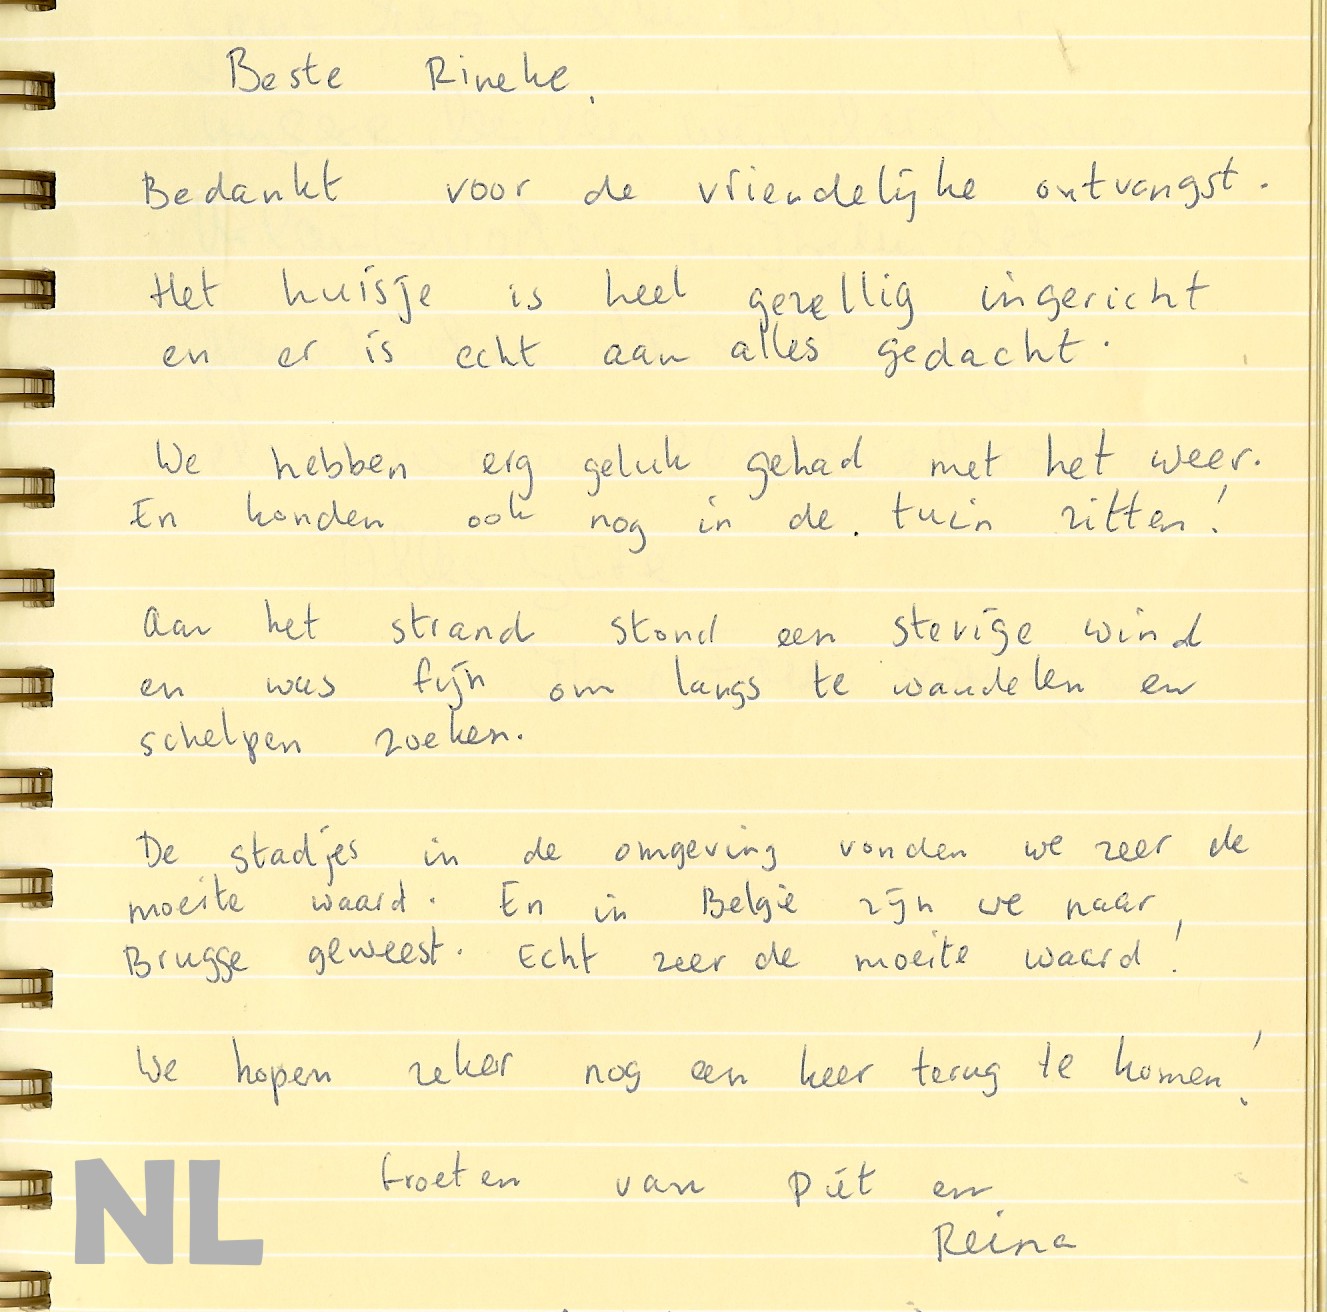 Beste Rineke,
Bedankt voor de vriendelijke ontvangst.
Het huisje is heel gezellig ingericht
en er is echt aan alles gedacht.
We hebben erg geluk gehad met het weer.
En konden ook nog in de tuin zitten!
Aan het strand stond een stevige wind
en was fijn om langs te wandelen en
schelpen zoeken.
De stadjes in de omgeving vonden we zeer de
moeite waard. En in België zijn we naar
Brugge geweest. Echt zeer de moeite waard!
We hopen zeker nog een keer terug te komen!
Groeten van Piet en
Reina
NL